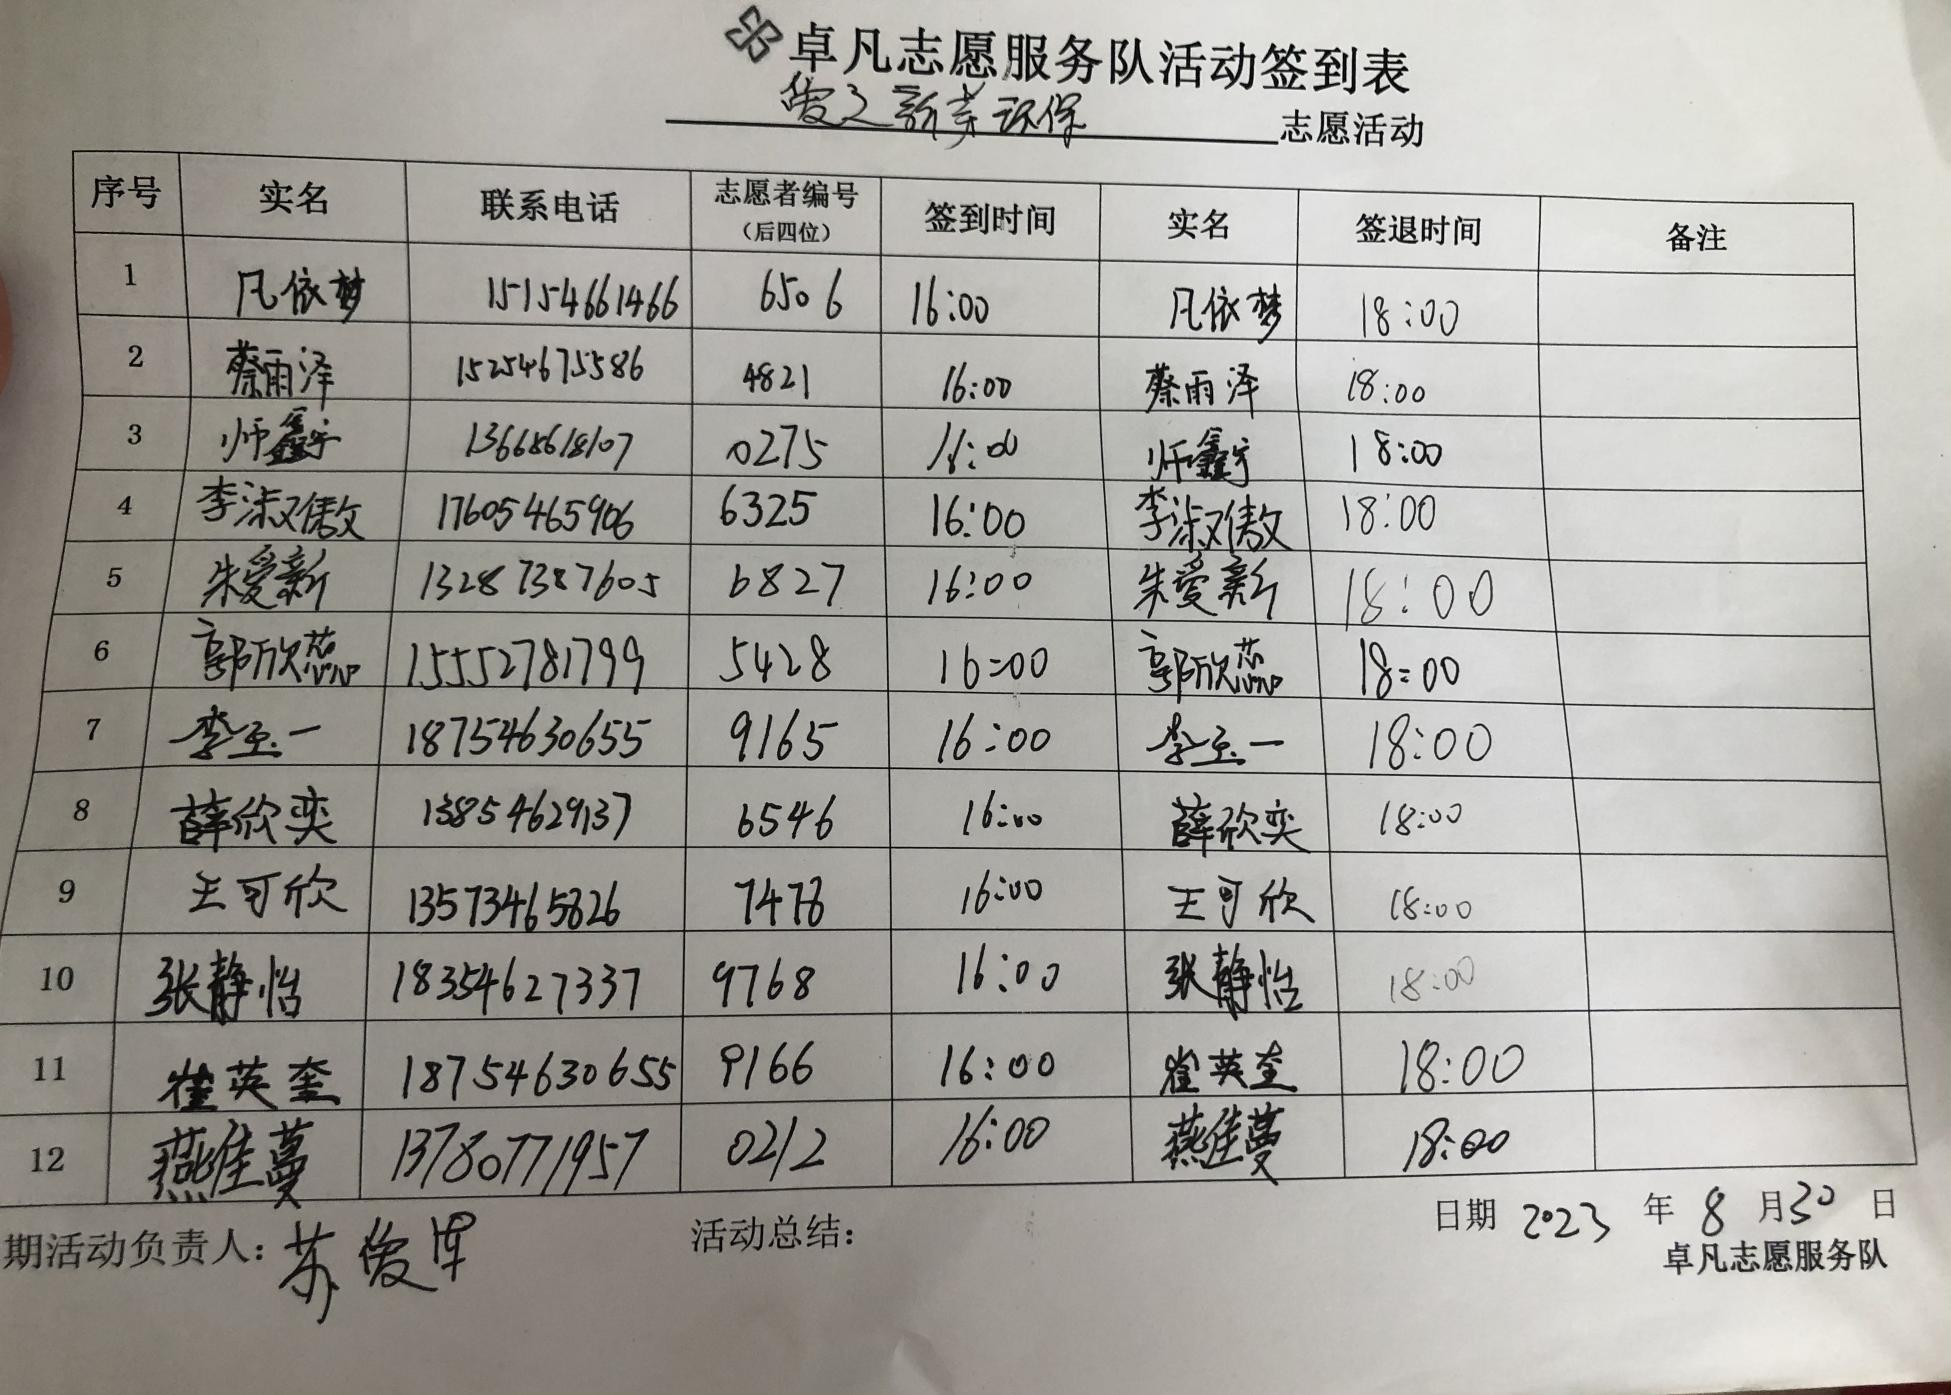 卓凡志愿服务队活动签到表
爱之新芽环保 志愿活动
序号 实名 联系电话 志愿者编号（后四位） 签到时间 实名 签退时间 备注
1 凡依梦 15154661466 6506 16:00 凡依梦 18:00
2 蔡雨泽 15254675586 4821 16:00 蔡雨泽 18:00
3 师鑫宇 13668618107 0275 16:00 师鑫宇 18:00
4 李淑傲 17605465906 6325 16:00 李淑傲 18:00
5 朱爱新 13287387605 6827 16:00 朱爱新 18:00
6 郭欣蕊 15552781799 5428 16:00 郭欣蕊 18:00
7 李至一 18754630655 9165 16:00 李至一 18:00
8 薛欣奕 13854629137 6546 16:00 薛欣奕 18:00
9 王可欣 13573465826 7478 16:00 王可欣 18:00
10 张静怡 18354627337 9768 16:00 张静怡 18:00
11 崔英奎 18754630655 9166 16:00 崔英奎 18:00
12 燕佳蔓 13780771957 0212 16:00 燕佳蔓 18:00
期活动负责人：苏俊 活动总结： 日期 2023 年 8 月 30 日
卓凡志愿服务队